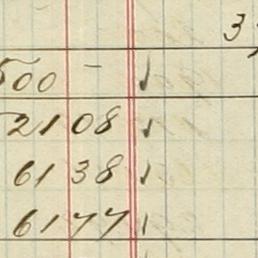 3
500 –
2108 ✓
6138 ✓
6177 ✓